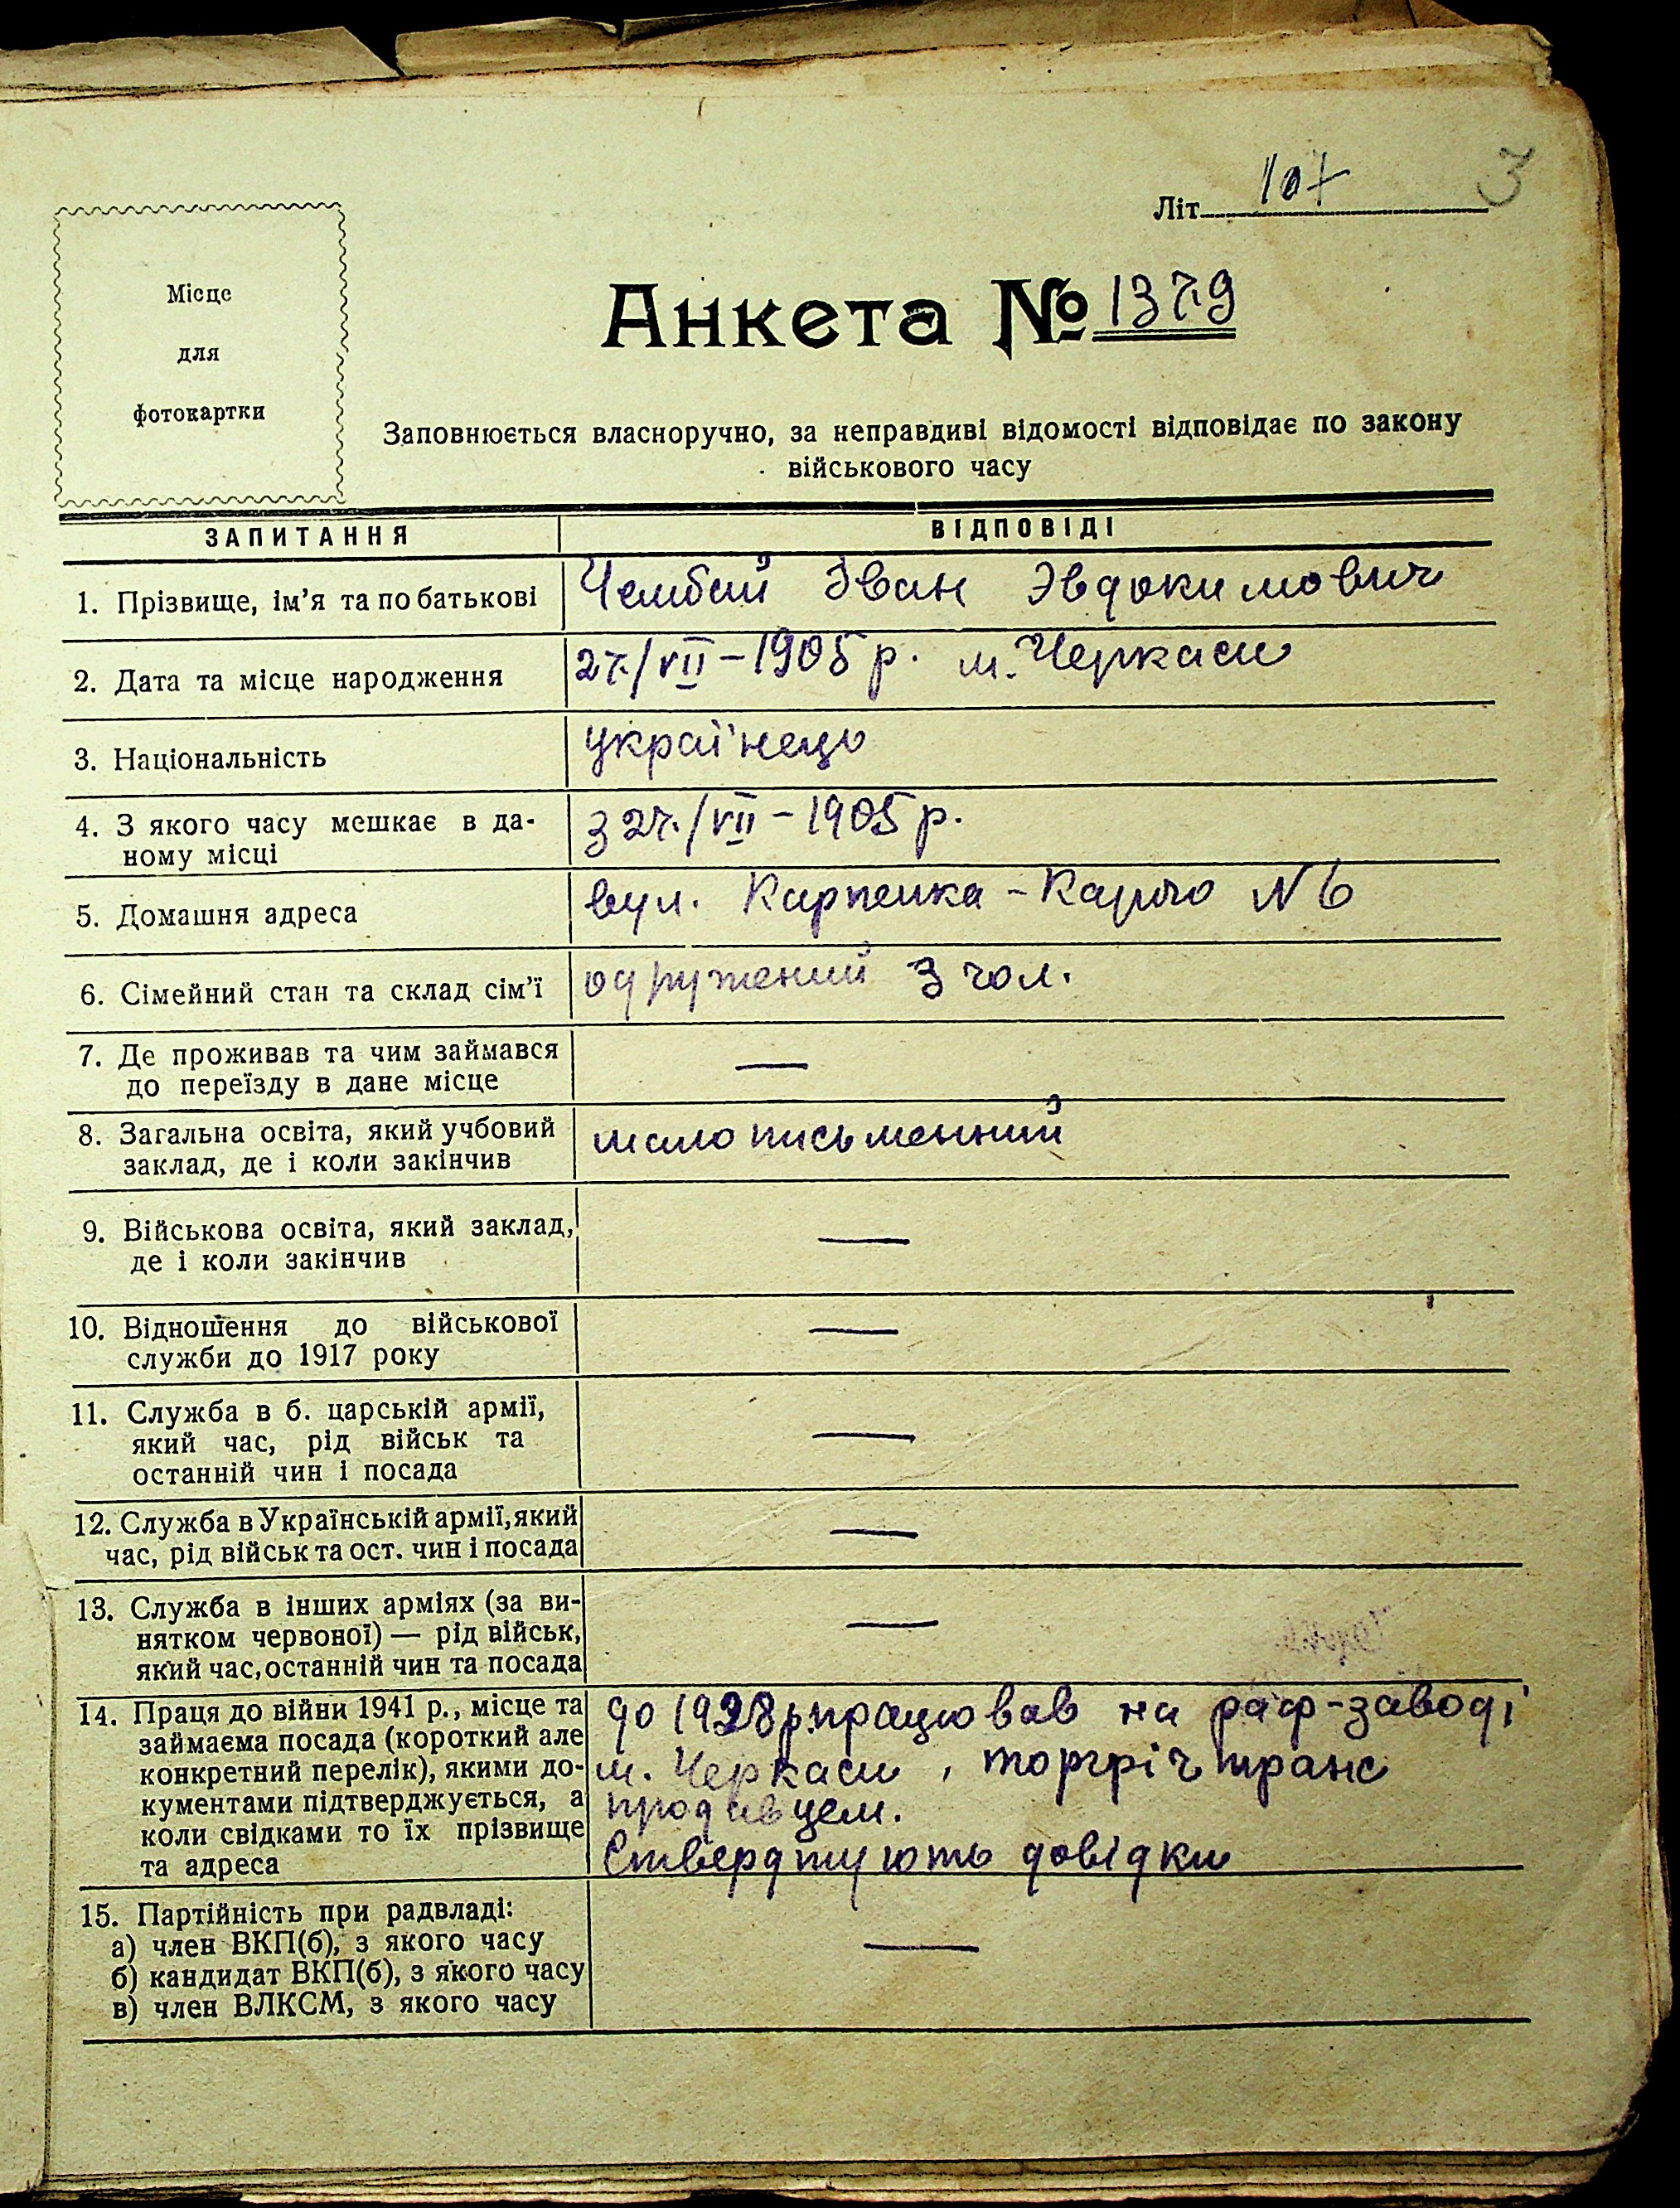 3
Літ. 107
Місце
для
фотокартки
Анкета № 1379
Заповнюється власноручно, за неправдиві відомості відповідає по закону
військового часу
ЗАПИТАННЯ ВІДПОВІДІ
1. Прізвище, ім'я та по батькові Чембай Іван Эвдокимович
2. Дата та місце народження 27/VII-1905 р. м. Черкаси
3. Національність українець
4. З якого часу мешкає в да-
ному місці з 27/VII-1905 р.
5. Домашня адреса вул. Карпенка-Карого N 6
6. Сімейний стан та склад сім'ї одружений 3 чол.
7. Де проживав та чим займався
до переїзду в дане місце —
8. Загальна освіта, який учбовий
заклад, де і коли закінчив мало письменний
9. Військова освіта, який заклад,
де і коли закінчив —
10. Відношення до військової
служби до 1917 року —
11. Служба в б. царській армії,
який час, рід військ та
останній чин і посада —
12. Служба в Українській армії, який
час, рід військ та ост. чин і посада —
13. Служба в інших арміях (за ви-
нятком червоної) — рід військ,
який час, останній чин та посада —
14. Праця до війни 1941 р., місце та
займаєма посада (короткий але
конкретний перелік), якими до-
кументами підтверджується, а
коли свідками то їх прізвище
та адреса
до 1928 р. працював на раф-заводі
м. Черкаси, торгрічтранс
продавцем.
Стверджують довідки
15. Партійність при радвладі:
а) член ВКП(б), з якого часу
б) кандидат ВКП(б), з якого часу
в) член ВЛКСМ, з якого часу —